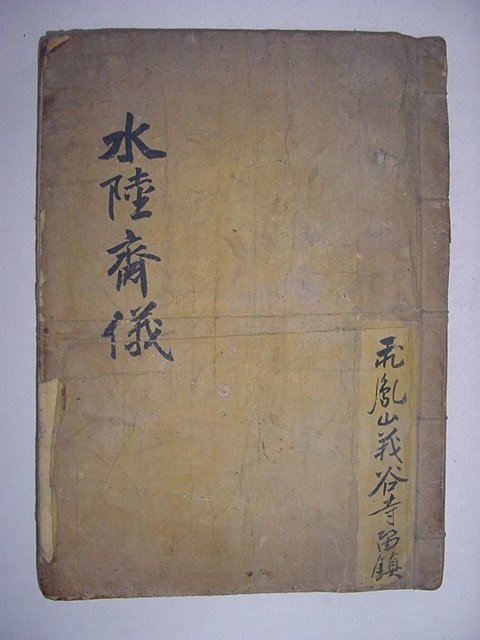 飛鳳山義谷寺留鎮
水陸齊儀